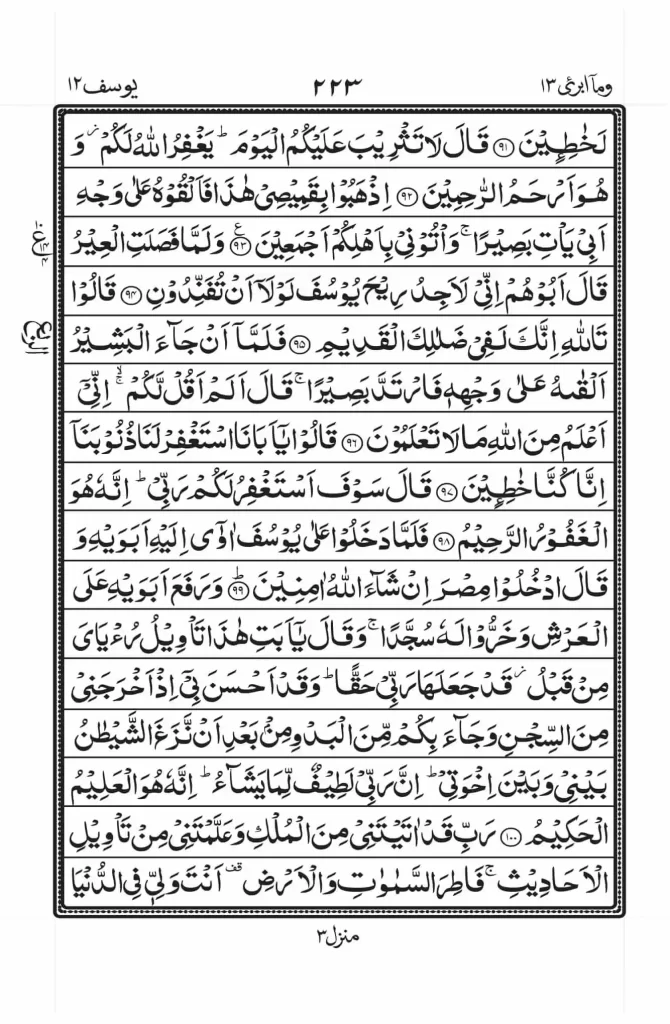 وماۤ ابرئ ١٣ ٢٢٣ يوسف ١٢
لَخٰطِـِٕيْنَ ﴿۹۱﴾ قَالَ لَا تَثْرِيْبَ عَلَيْكُمُ الْيَوْمَ ؕ يَغْفِرُ اللّٰهُ لَكُمْ ز وَ
هُوَ اَرْحَمُ الرّٰحِمِيْنَ ﴿۹۲﴾ اِذْهَبُوْا بِقَمِيْصِيْ هٰذَا فَاَلْقُوْهُ عَلٰى وَجْهِ
اَبِيْ يَاْتِ بَصِيْرًا ۚ وَاْتُوْنِيْ بِاَهْلِكُمْ اَجْمَعِيْنَ ﴿۹۳﴾ ع وَلَمَّا فَصَلَتِ الْعِيْرُ
قَالَ اَبُوْهُمْ اِنِّيْ لَاَجِدُ رِيْحَ يُوْسُفَ لَوْلَاۤ اَنْ تُفَنِّدُوْنِ ﴿۹۴﴾ قَالُوْا
تَاللّٰهِ اِنَّكَ لَفِيْ ضَلٰلِكَ الْقَدِيْمِ ﴿۹۵﴾ فَلَمَّاۤ اَنْ جَآءَ الْبَشِيْرُ
اَلْقٰىهُ عَلٰى وَجْهِهٖ فَارْتَدَّ بَصِيْرًا ۚ قَالَ اَلَمْ اَقُلْ لَّكُمْ ۚۙ اِنِّيْۤ
اَعْلَمُ مِنَ اللّٰهِ مَا لَا تَعْلَمُوْنَ ﴿۹۶﴾ قَالُوْا يٰۤاَبَانَا اسْتَغْفِرْ لَنَا ذُنُوْبَنَاۤ
اِنَّا كُنَّا خٰطِـِٕيْنَ ﴿۹۷﴾ قَالَ سَوْفَ اَسْتَغْفِرُ لَكُمْ رَبِّيْ ؕ اِنَّهٗ هُوَ
الْغَفُوْرُ الرَّحِيْمُ ﴿۹۸﴾ فَلَمَّا دَخَلُوْا عَلٰى يُوْسُفَ اٰوٰۤى اِلَيْهِ اَبَوَيْهِ وَ
قَالَ ادْخُلُوْا مِصْرَ اِنْ شَآءَ اللّٰهُ اٰمِنِيْنَ ﴿۹۹﴾ ؕ وَرَفَعَ اَبَوَيْهِ عَلَى
الْعَرْشِ وَخَرُّوْا لَهٗ سُجَّدًا ۚ وَقَالَ يٰۤاَبَتِ هٰذَا تَاْوِيْلُ رُءْيَايَ
مِنْ قَبْلُ ز قَدْ جَعَلَهَا رَبِّيْ حَقًّا ؕ وَقَدْ اَحْسَنَ بِيْۤ اِذْ اَخْرَجَنِيْ
مِنَ السِّجْنِ وَجَآءَ بِكُمْ مِّنَ الْبَدْوِ مِنْۢ بَعْدِ اَنْ نَّزَغَ الشَّيْطٰنُ
بَيْنِيْ وَبَيْنَ اِخْوَتِيْ ؕ اِنَّ رَبِّيْ لَطِيْفٌ لِّمَا يَشَآءُ ؕ اِنَّهٗ هُوَ الْعَلِيْمُ
الْحَكِيْمُ ﴿۱۰۰﴾ رَبِّ قَدْ اٰتَيْتَنِيْ مِنَ الْمُلْكِ وَعَلَّمْتَنِيْ مِنْ تَاْوِيْلِ
الْاَحَادِيْثِ ۚ فَاطِرَ السَّمٰوٰتِ وَالْاَرْضِ قف اَنْتَ وَلِيّٖ فِي الدُّنْيَا
منزل ٣